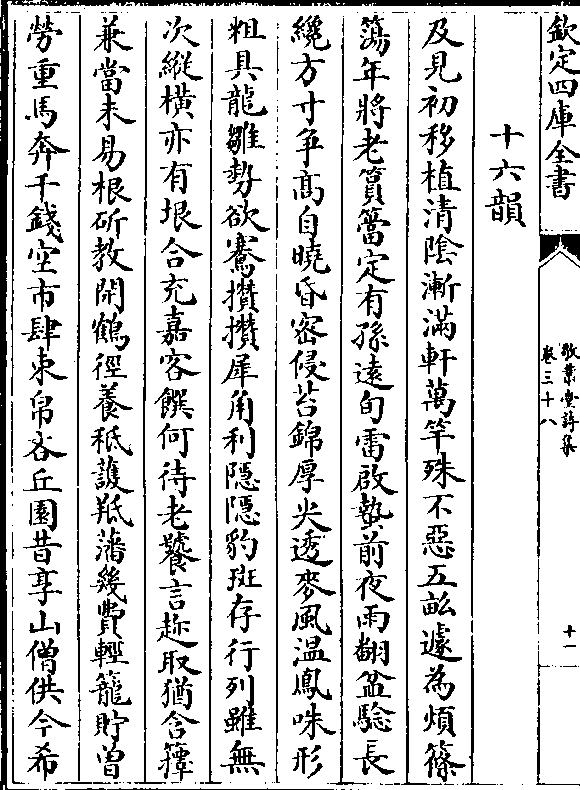 欽定四庫全書
敬業堂詩集
卷三十八
十一
十六韻
及見初移植清陰漸滿軒萬竿殊不惡五畝遽為煩篠
簜年將老篔簹定有孫遠旬雷啟蟄前夜雨翻盆驗長
纔方寸爭高自曉昏密侵苔錦厚尖透麥風温鳳咮形
粗具龍雛勢欲騫攢攢犀角利隱隱豹斑存行列雖無
次縱横亦有垠合充嘉客饌何待老饕言趂取猶含籜
兼當未易根斫教開鶴徑養秪護羝藩幾費輕籠貯曽
勞重馬奔千錢空市肆束帛吝丘園昔享山僧供今希